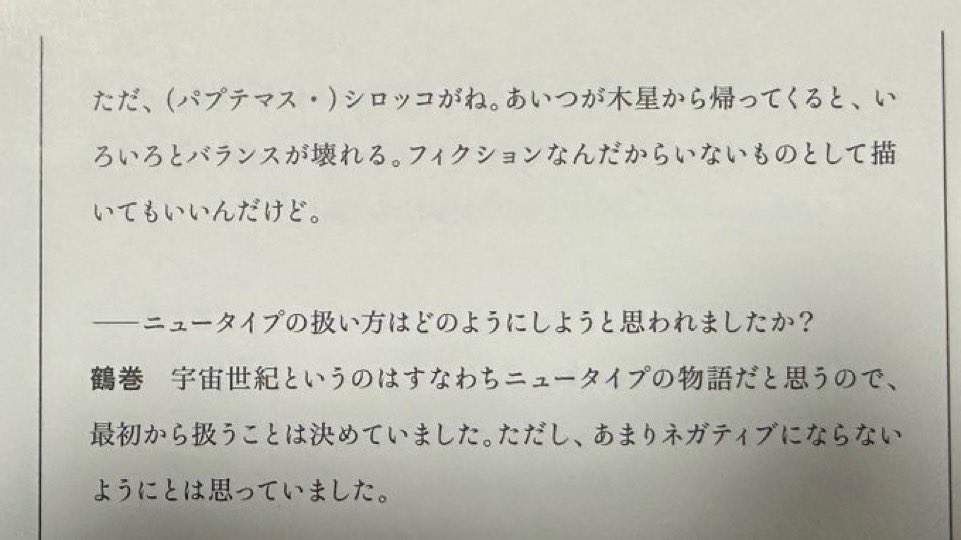 ただ、（パプテマス・）シロッコがね。あいつが木星から帰ってくると、い
ろいろとバランスが壊れる。フィクションなんだからいないものとして描
いてもいいんだけど。
――ニュータイプの扱い方はどのようにしようと思われましたか？
鶴巻　宇宙世紀というのはすなわちニュータイプの物語だと思うので、
最初から扱うことは決めていました。ただし、あまりネガティブにならない
ようにとは思っていました。